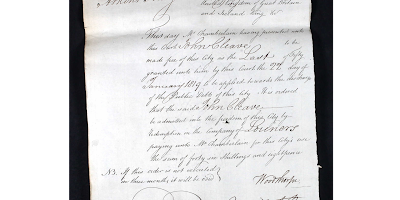 United Kingdom of Great Britain
and Ireland King &c
Thursday Mr Chamberlain having presented unto
this Court John Cleave to be
made free of this city as the Last of Fifty
granted unto him by this Court the 27th day of
January 1819 to be applied towards the discharge
of the Public Debt of this City It is ordered
that the said John Cleave
be admitted into the freedom of this City by
Redemption in the Company of Loriners
paying unto Mr Chamberlain for this City's use
the sum of forty six shillings and eightpence
NB If this order is not executed
in three months, it will be void
Woodthorpe